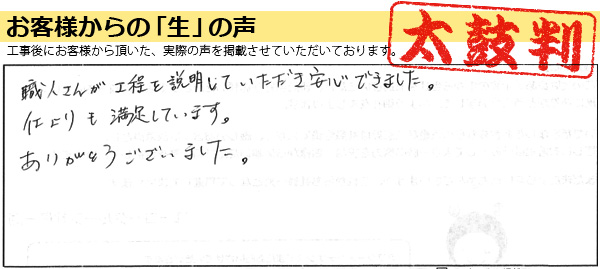 お客様からの「生」の声
工事後にお客様から頂いた、実際の声を掲載させていただいております。
太鼓判
職人さんが工程を説明していただき安心できました。
仕上りも満足しています。
ありがとうございました。